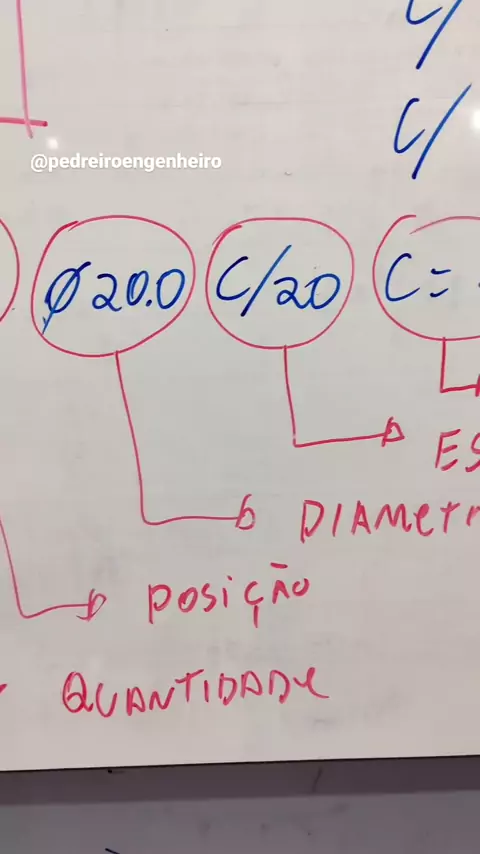 C/
C/
@pedreiroengenheiro
Ø20.0 C/20 C=
POSIÇÃO
QUANTIDADE